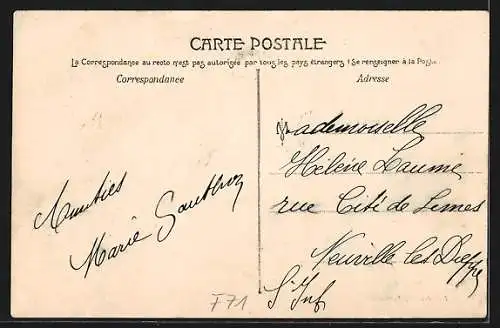 CARTE POSTALE
La Correspondance au recto n'est pas autorisée par tous les pays étrangers (Se renseigner à la Poste.
Correspondance
Adresse
Amitiés
Marie
Mademoiselle
Hélène
rue Cité de Limes
Neuville les Dieppe
S. Inf
F71